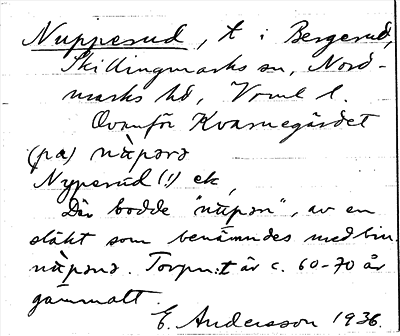 Nuppesud, t i Bergerud,
Skillingmarks sn, Nord-
marks hd, Vrml l.
Ovanför Kvarnegärdet
(pa) nùpərə
Nypesud (!) ek,
Där bodde "nùpən", av en
släkt som benämndes med bin.
nùpənə. Torpet är c. 60-70 år
gammalt.
E. Andersson 1936